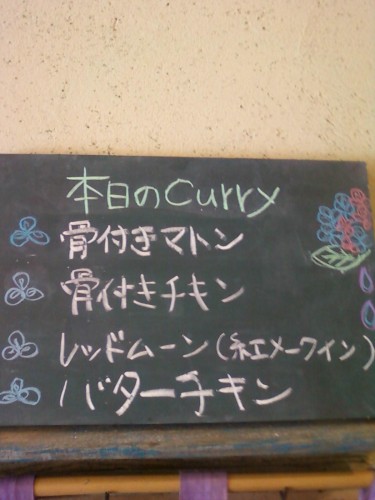 本日のCurry
骨付きマトン
骨付きチキン
レッドムーン(紅メークイン)
バターチキン